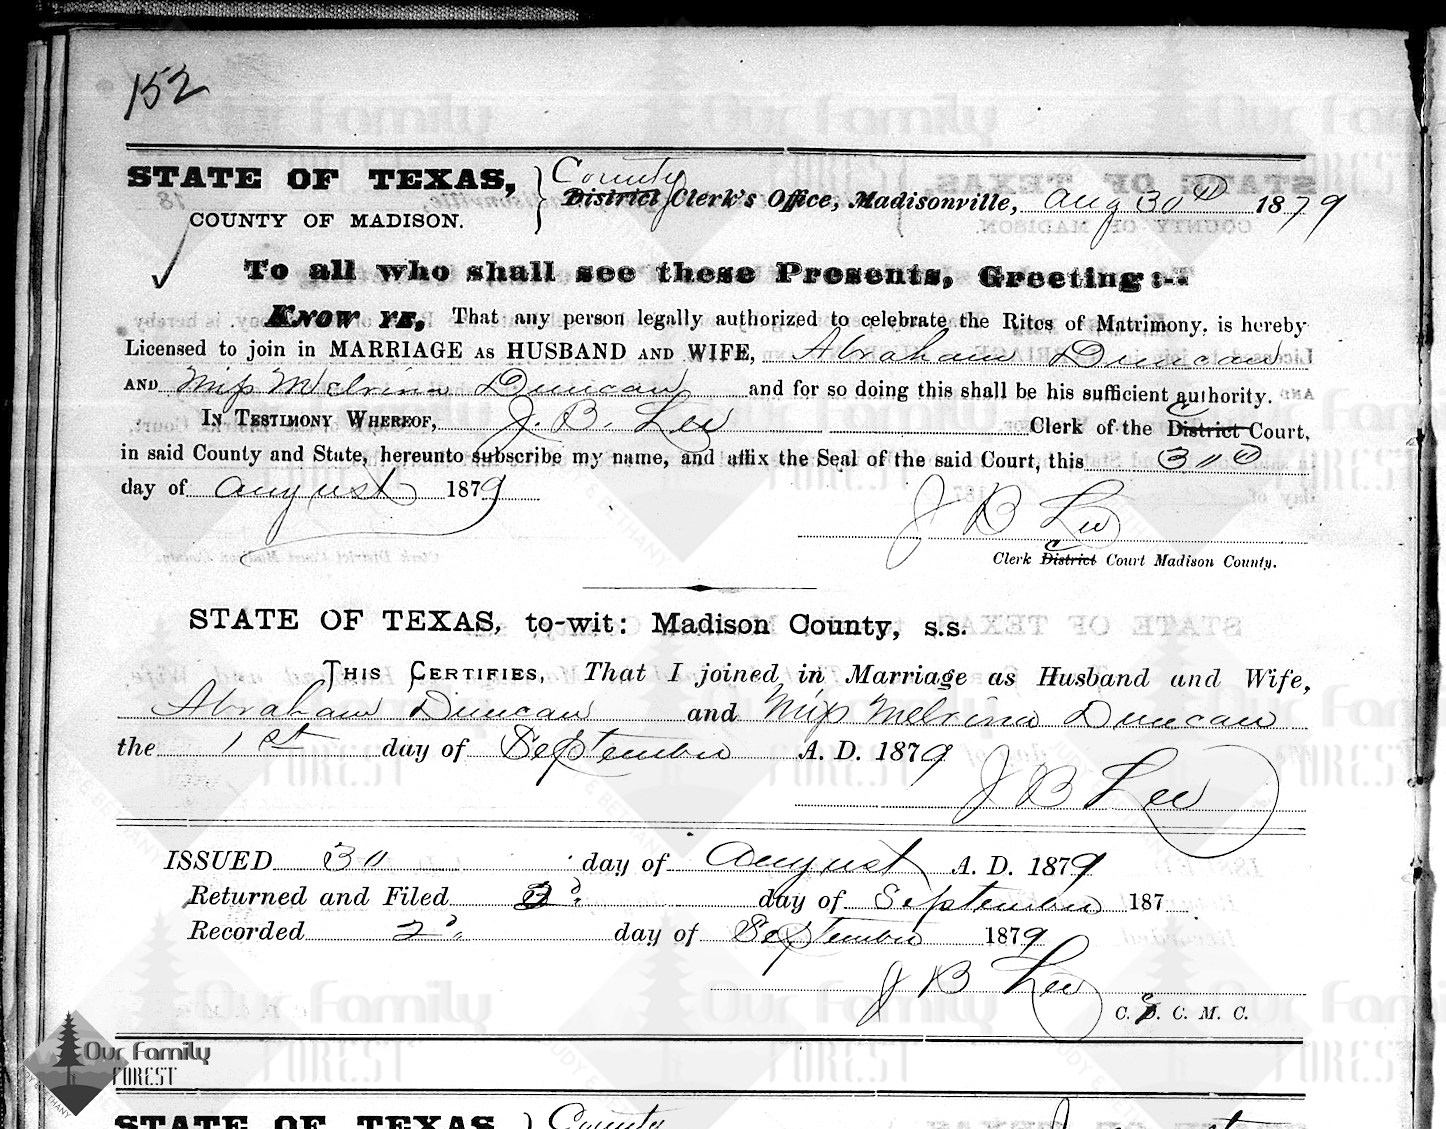 152
STATE OF TEXAS, County
District Clerk's Office, Madisonville, Aug 30th 1879
COUNTY OF MADISON.
To all who shall see these Presents, Greeting:--
KNOW YE, That any person legally authorized to celebrate the Rites of Matrimony, is hereby
Licensed to join in MARRIAGE AS HUSBAND AND WIFE, Abraham Duncan
AND Miss Melvina Duncan and for so doing this shall be his sufficient authority.
IN TESTIMONY WHEREOF, J. B. Lee Clerk of the District C Court,
in said County and State, hereunto subscribe my name, and affix the Seal of the said Court, this 30th
day of August 1879
J B Lee
Clerk District C Court Madison County.
STATE OF TEXAS, to-wit: Madison County, s.s.
THIS CERTIFIES, That I joined in Marriage as Husband and Wife,
Abraham Duncan and Miss Melvina Duncan
the 1st day of September A. D. 1879
J B Lee
ISSUED 30 day of August A. D. 1879
Returned and Filed 2d day of September 187
Recorded 2d day of September 1879
J B Lee
C. D. C. M. C.
Our Family
FOREST
JUDY E BETHANY
STATE OF TEXAS, County